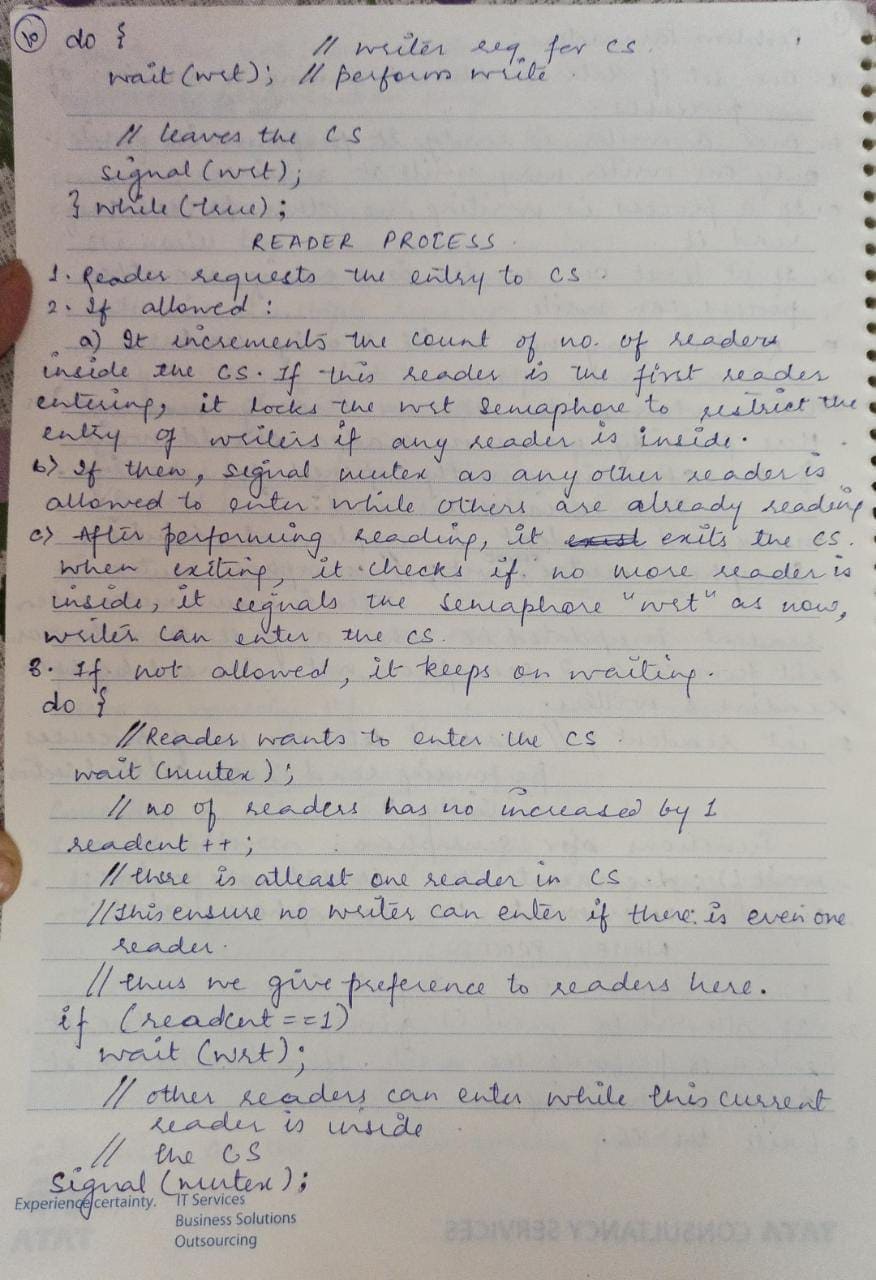 10 do {
// writer req. for CS.
wait (wrt); // performs write

// leaves the CS
signal (wrt);
} while (true);
READER PROCESS
1. Reader requests the entry to CS.
2. If allowed:
a) It increments the count of no. of readers
inside the CS. If this reader is the first reader
entering, it locks the wrt semaphore to restrict the
entry of writers if any reader is inside.
b) If then, signal mutex as any other reader is
allowed to enter while others are already reading
c) After performing reading, it exits the CS.
when exiting, it checks if no more reader is
inside, it signals the semaphore "wrt" as now,
writer can enter the CS.
3. If not allowed, it keeps on waiting.
do {
// Reader wants to enter the CS.
wait (mutex);
// no of readers has no increased by 1
readcnt ++;
// there is atleast one reader in CS.
// this ensure no writer can enter if there is even one
reader.
// thus we give preference to readers here.
if (readcnt == 1)
wait (wrt);
// other readers can enter while this current
reader is inside
// the CS
signal (mutex);
Experience certainty. IT Services
Business Solutions
Outsourcing